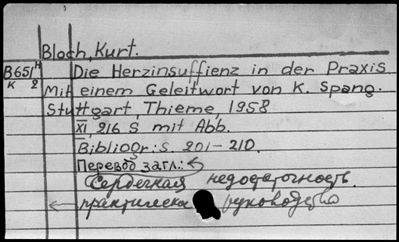 Bloch, Kurt.
Б651н Die Herzinsuffienz in der Praxis
K 2 Mit einem Geleitwort von K. Spang.
Stuttgart, Thieme, 1958
XI, 216 S mit Abb.
Bibliogr: S. 201-210.
Перевод загл.:
Сердечная недостаточность.
руководство